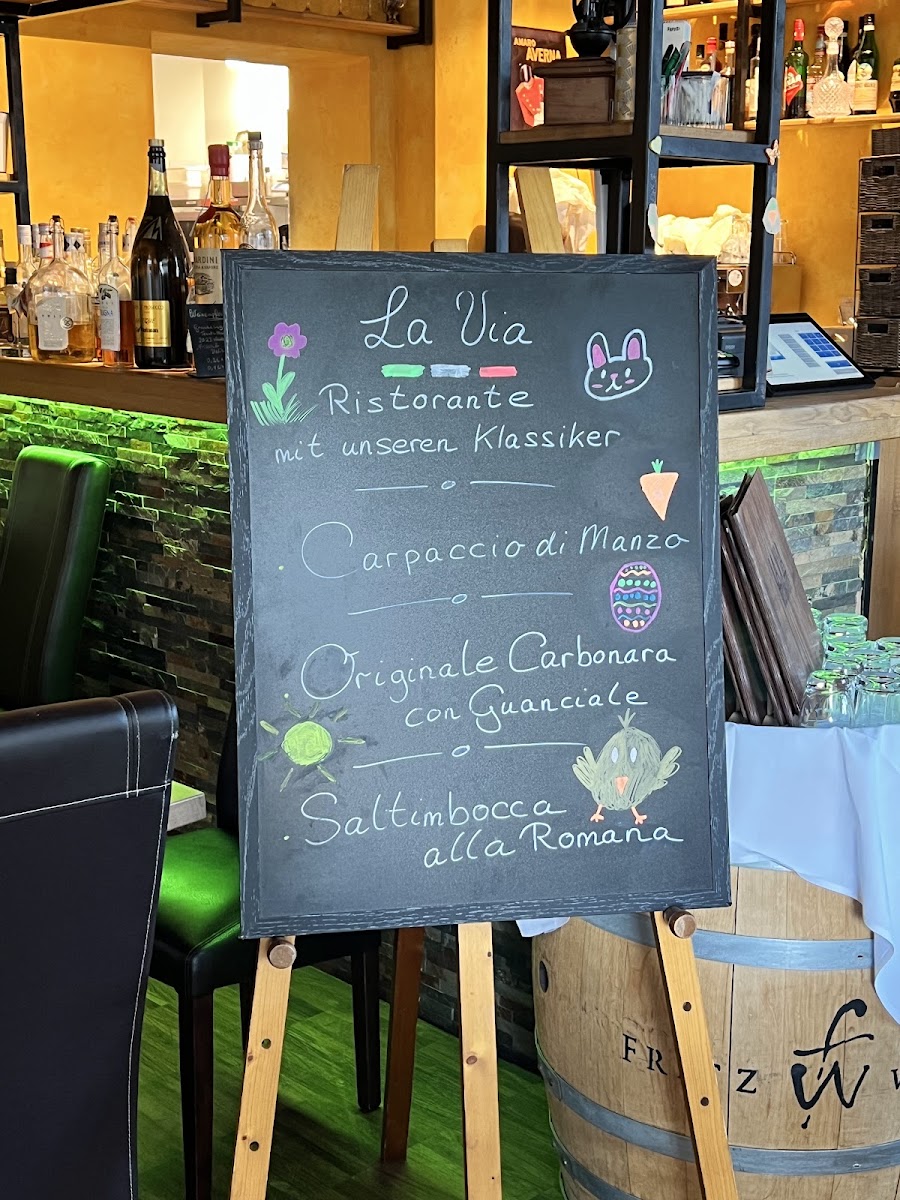 AMARO
AVERNA
La Via
Ristorante
mit unseren Klassiker
Carpaccio di Manzo
Originale Carbonara
con Guanciale
Saltimbocca
alla Romana
FRITZ